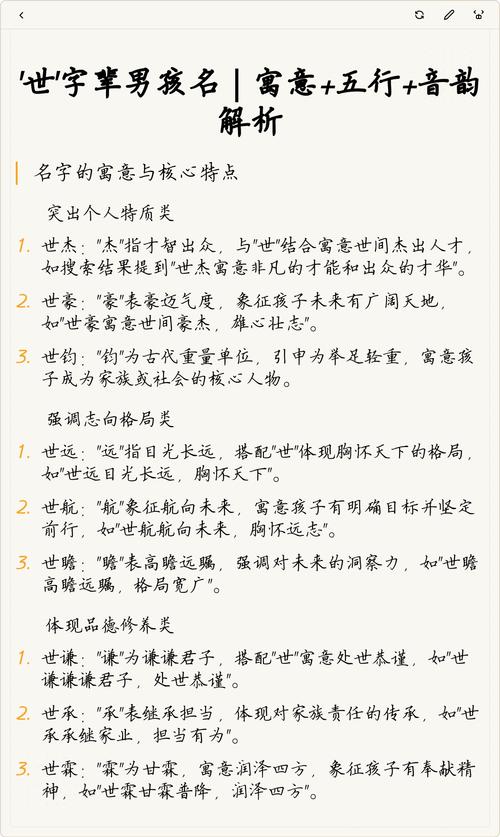 '世'字辈男孩名 | 寓意+五行+音韵
解析
名字的寓意与核心特点
突出个人特质类
1. 世杰："杰"指才智出众，与"世"结合寓意世间杰出人才，
如搜索结果提到"世杰寓意非凡的才能和出众的才华"。
2. 世豪："豪"表豪迈气度，象征孩子未来有广阔天地，
如"世豪寓意世间豪杰，雄心壮志"。
3. 世钧："钧"为古代重量单位，引申为举足轻重，寓意孩
子成为家族或社会的核心人物。
强调志向格局类
1. 世远："远"指目光长远，搭配"世"体现胸怀天下的格局，
如"世远目光长远，胸怀天下"。
2. 世航："航"象征航向未来，寓意孩子有明确目标并坚定
前行，如"世航航向未来，胸怀远志"。
3. 世瞻："瞻"表高瞻远瞩，强调对未来的洞察力，如"世瞻
高瞻远瞩，格局宽广"。
体现品德修养类
1. 世谦："谦"为谦谦君子，搭配"世"寓意处世恭谨，如"世
谦谦谦君子，处世恭谨"。
2. 世承："承"表继承担当，体现对家族责任的传承，如"世
承承继家业，担当有为"。
3. 世霖："霖"为甘霖，寓意润泽四方，象征孩子有奉献精
神，如"世霖甘霖普降，润泽四方"。